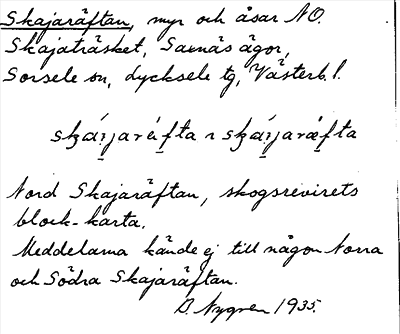 Skajaräftan, myr och åsar NO.
Skajaträsket, Saxnäs ägor,
Sorsele sn, Lycksele tg, Västerb. l.
skái̯jaræ̀fta ~ skái̯jaræfta
Nord Skajaräftan, skogsrevirets
block-karta.
Meddelarna kände ej till någon Norra
och Södra Skajaräftan.
D. Nygren 1935.